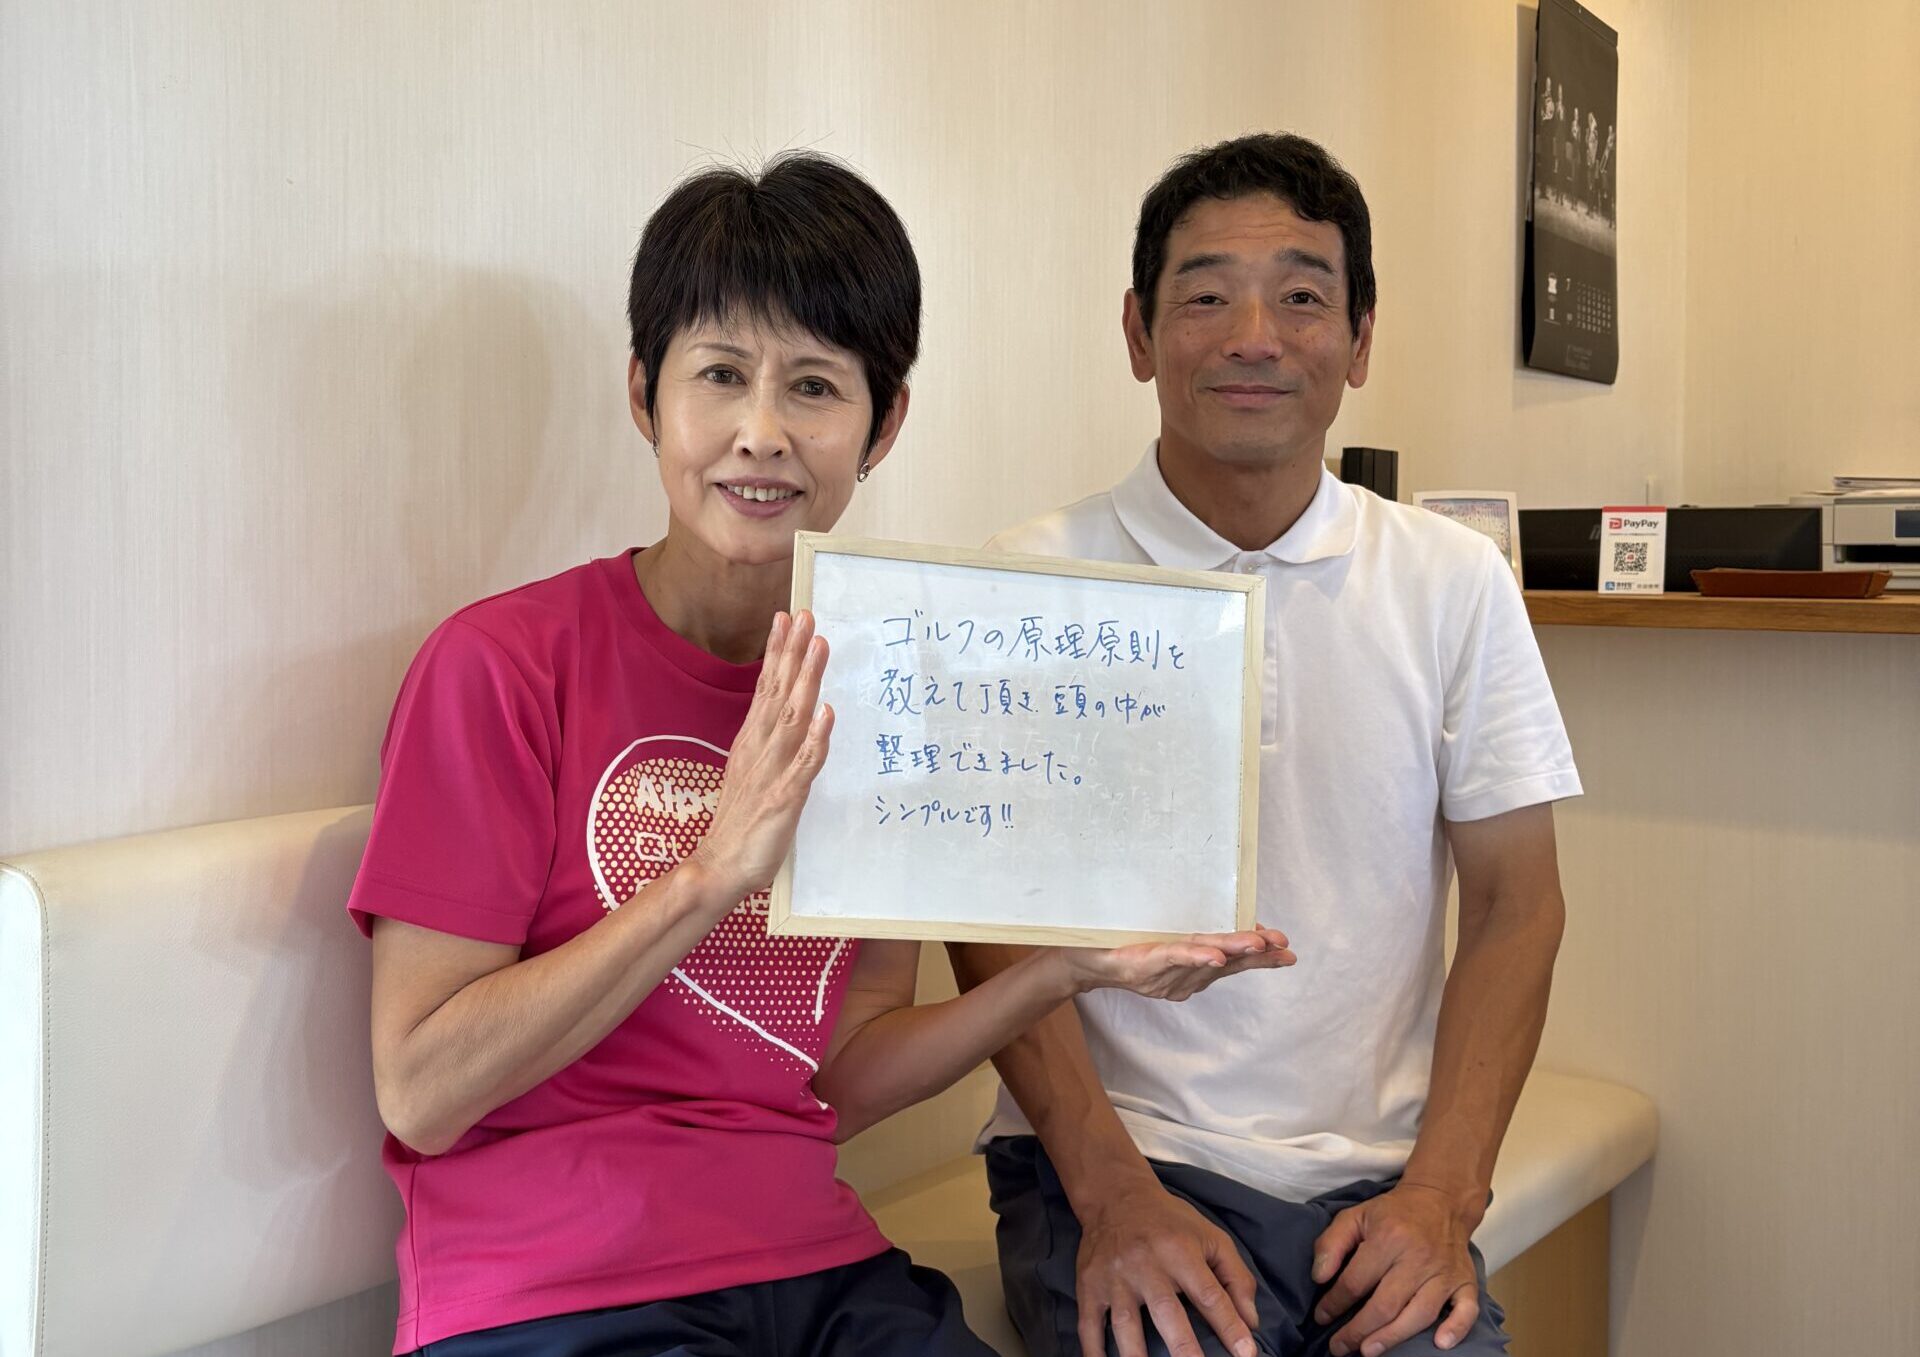 ゴルフの原理原則を
教えて頂き、頭の中が
整理できました。
シンプルです!!
Alpe
PayPay
7